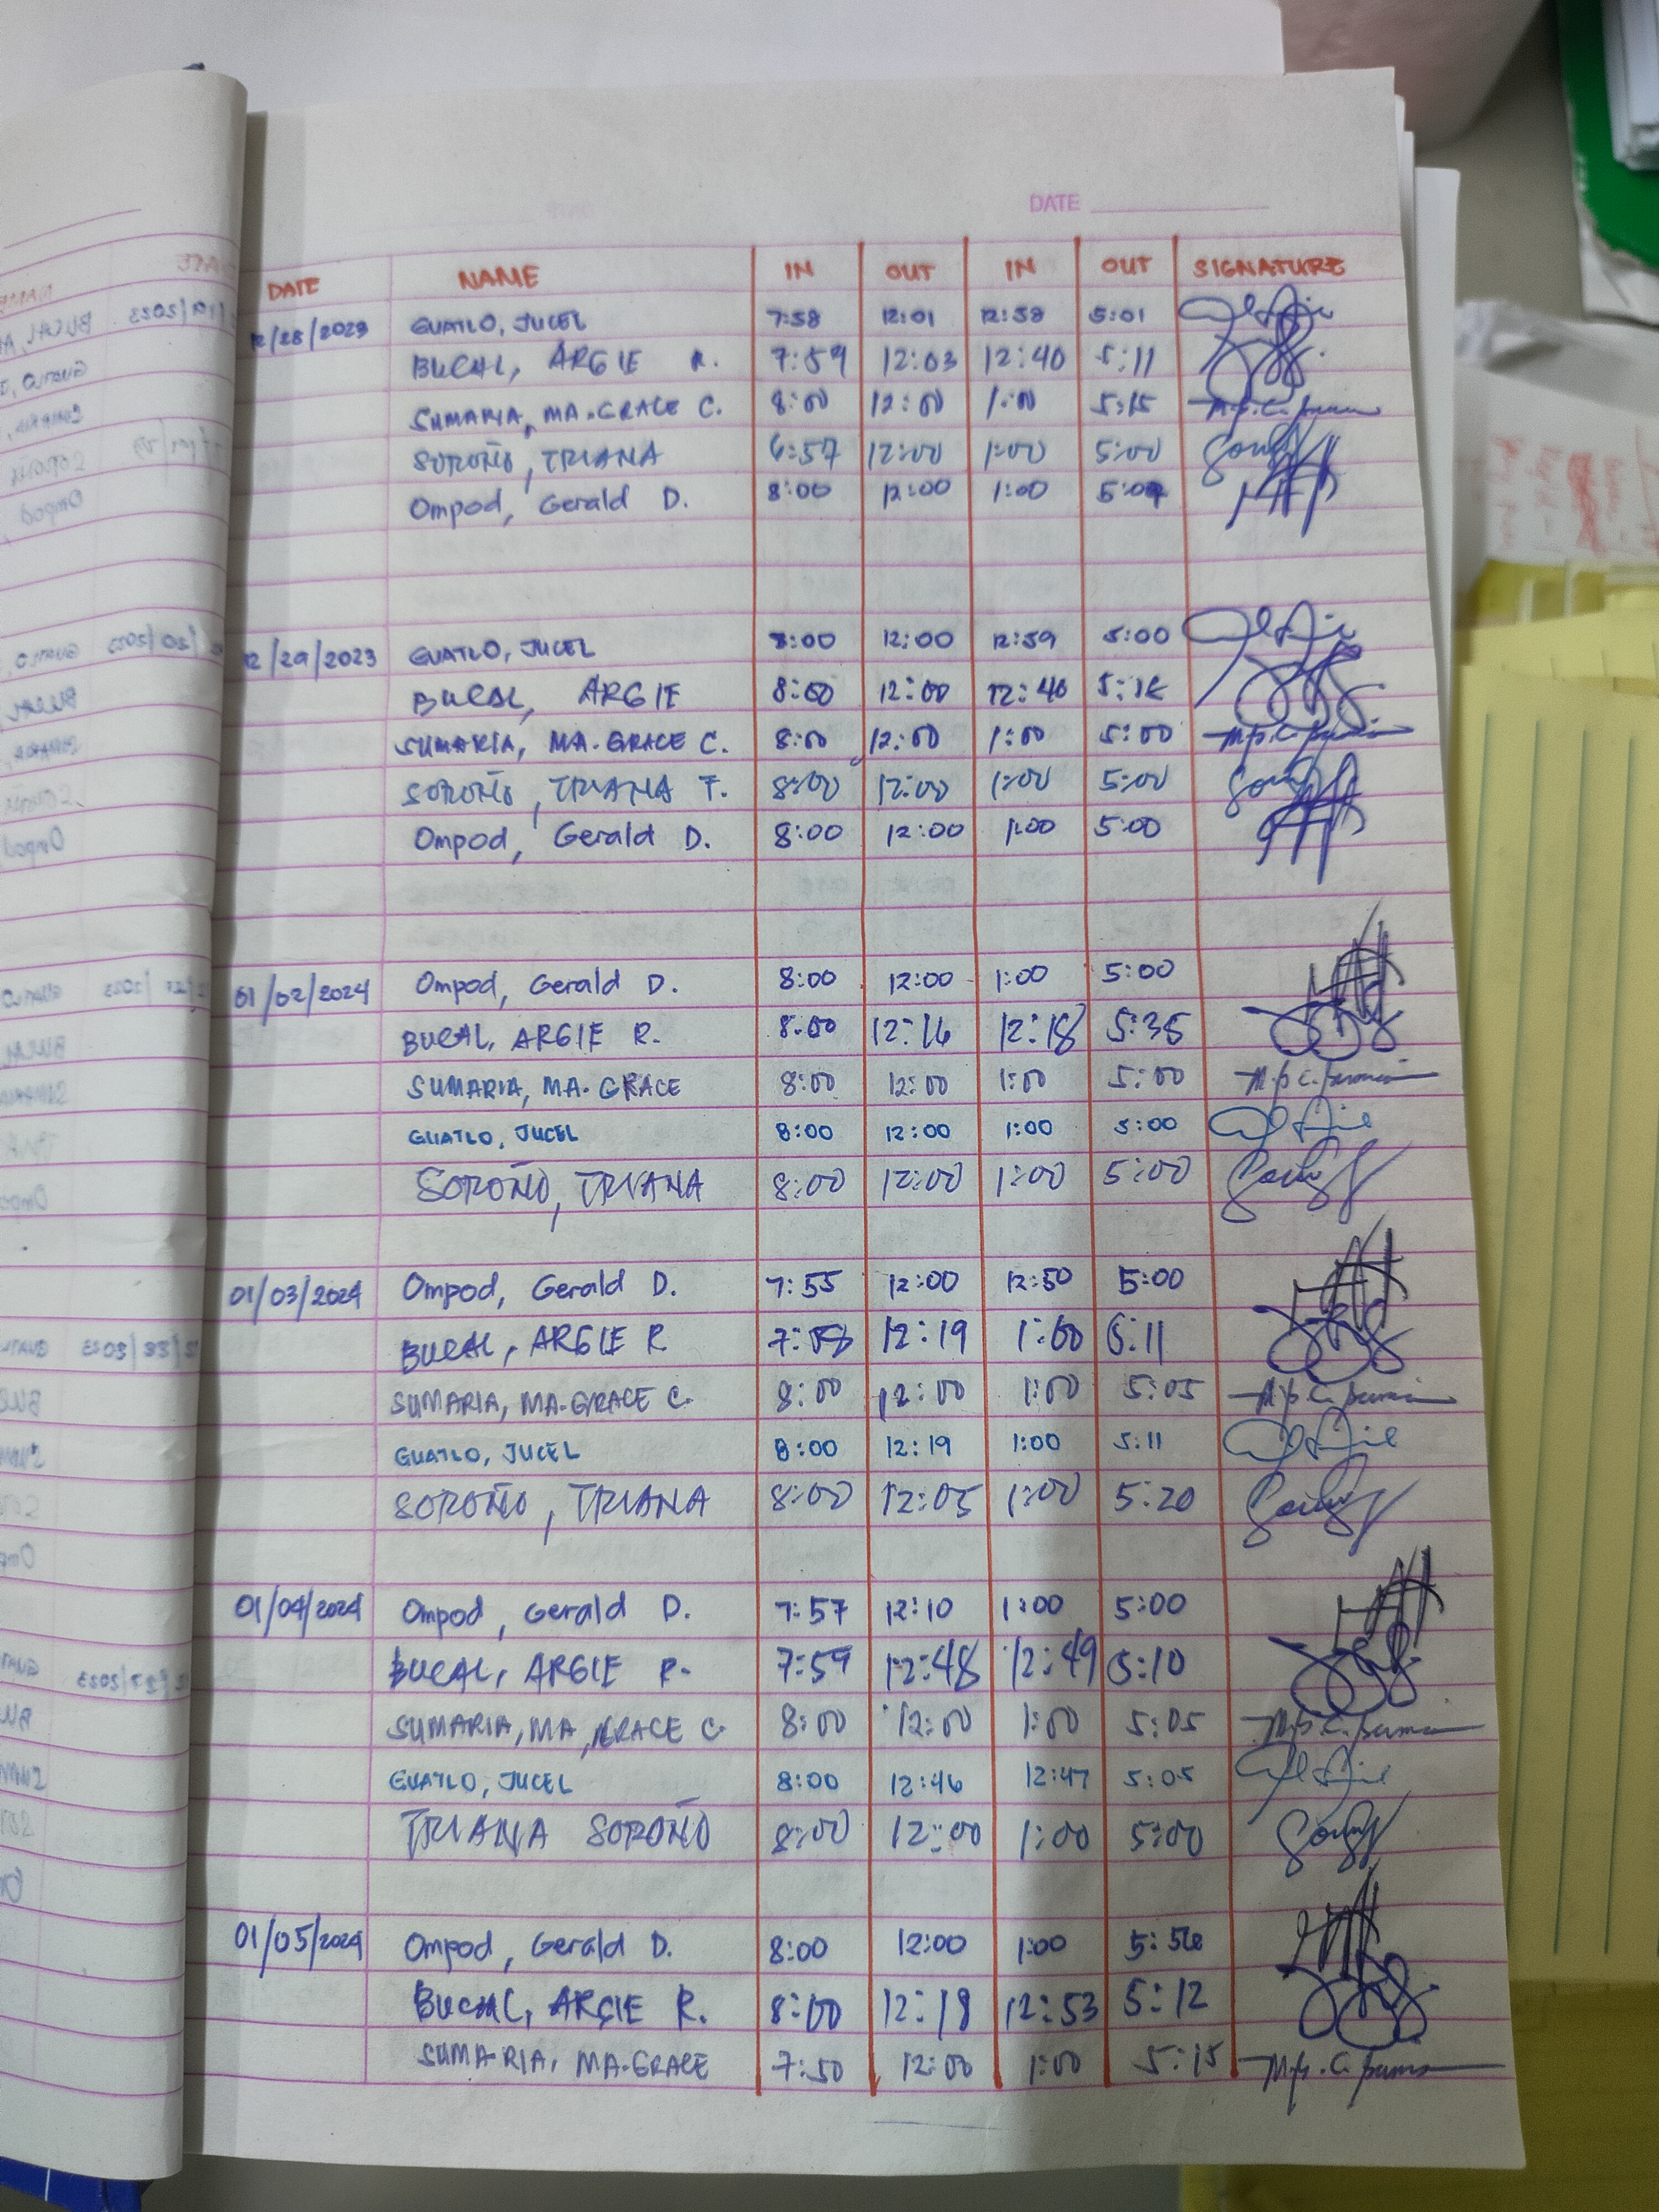 DATE
DATE NAME IN OUT IN OUT SIGNATURE
12/28/2023 GUATLO, JUCEL 7:58 12:01 12:58 5:01
BUCAL, ARGIE R. 7:59 12:03 12:40 5:11
SUMARIA, MA. GRACE C. 8:00 12:00 1:00 5:15
SOROÑO, TRIANA 6:57 12:00 1:00 5:00
Ompod, Gerald D. 8:00 12:00 1:00
12/29/2023 GUATLO, JUCEL 8:00 12:00 12:59 5:00
BUCAL, ARGIE 8:00 12:00 12:40
SUMARIA, MA. GRACE C. 8:00 12:00 1:00 5:00
SOROÑO, TRIANA F. 8:00 12:00 1:00 5:00
Ompod, Gerald D. 8:00 12:00 1:00 5:00
01/02/2024 Ompod, Gerald D. 8:00 12:00 1:00 5:00
BUCAL, ARGIE R. 8:00 12:16 12:18 5:35
SUMARIA, MA. GRACE 8:00 12:00 1:00 5:00
GUATLO, JUCEL 8:00 12:00 1:00 5:00
SOROÑO, TRIANA 8:00 12:00 1:00 5:00
01/03/2024 Ompod, Gerald D. 7:55 12:00 12:50 5:00
BUCAL, ARGIE R 7:58 12:19 1:00 5:11
SUMARIA, MA. GRACE C. 8:00 12:00 1:00 5:05
GUATLO, JUCEL 8:00 12:19 1:00 5:11
SOROÑO, TRIANA 8:00 12:05 1:00 5:20
01/04/2024 Ompod, Gerald D. 7:57 12:10 1:00 5:00
BUCAL, ARGIE R. 7:59 12:48 12:49 5:10
SUMARIA, MA, GRACE C. 8:00 12:00 1:00 5:05
GUATLO, JUCEL 8:00 12:46 12:47 5:05
TRIANA SOROÑO 8:00 12:00 1:00 5:00
01/05/2024 Ompod, Gerald D. 8:00 12:00 1:00 5:56
BUCAL, ARGIE R. 8:00 12:18 12:53 5:12
SUMARIA, MA. GRACE 7:50 12:00 1:00 5:15